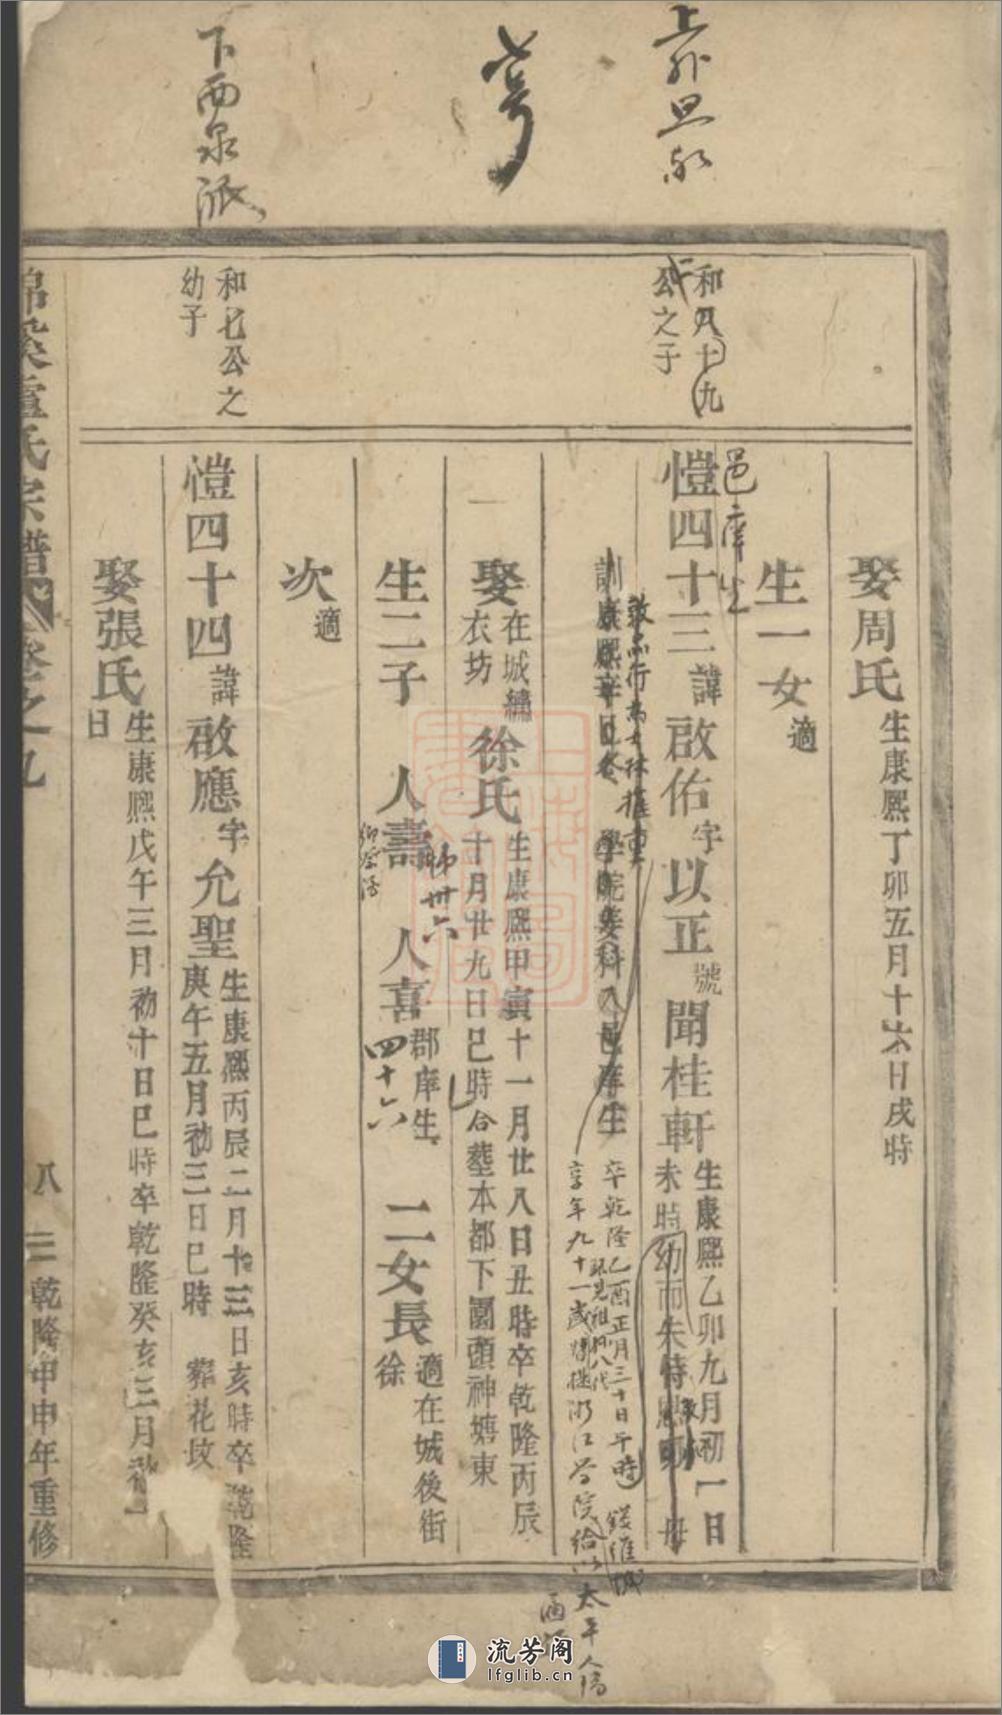 上外旦派
七號
下西泉派
和八十九
公之子
和七公之
幼子
娶周氏
生康熙丁卯五月十六日戌時
生一女適
邑庠生
愷四十三諱啟佑字以正號聞桂軒
生康熙乙卯九月初一日
未時幼而失恃
敦品行為士林推重
訓康熙辛巳 學院姜科入邑庠生
卒乾隆乙酉正月三十日午時
享年九十一歲
浙江學院
錢維城
給以太平人瑞
娶在城繡
衣坊
徐氏
生康熙甲寅十一月廿八日丑時卒乾隆丙辰
十月廿九日巳時合葬本都下園頭神塘東
生二子
人壽
人喜
郡庠生
四十六
二女長
適在城後街
徐
次適
愷四十四諱啟應字允聖
生康熙丙辰二月十三日亥時卒乾隆
庚午五月初三日巳時
葬花坟
娶張氏
生康熙戊午三月初十日巳時卒乾隆癸亥三月初一
日
錦溪盧氏宗譜
卷之九
八
三
乾隆甲申年重修
流芳阁
lfglib.cn